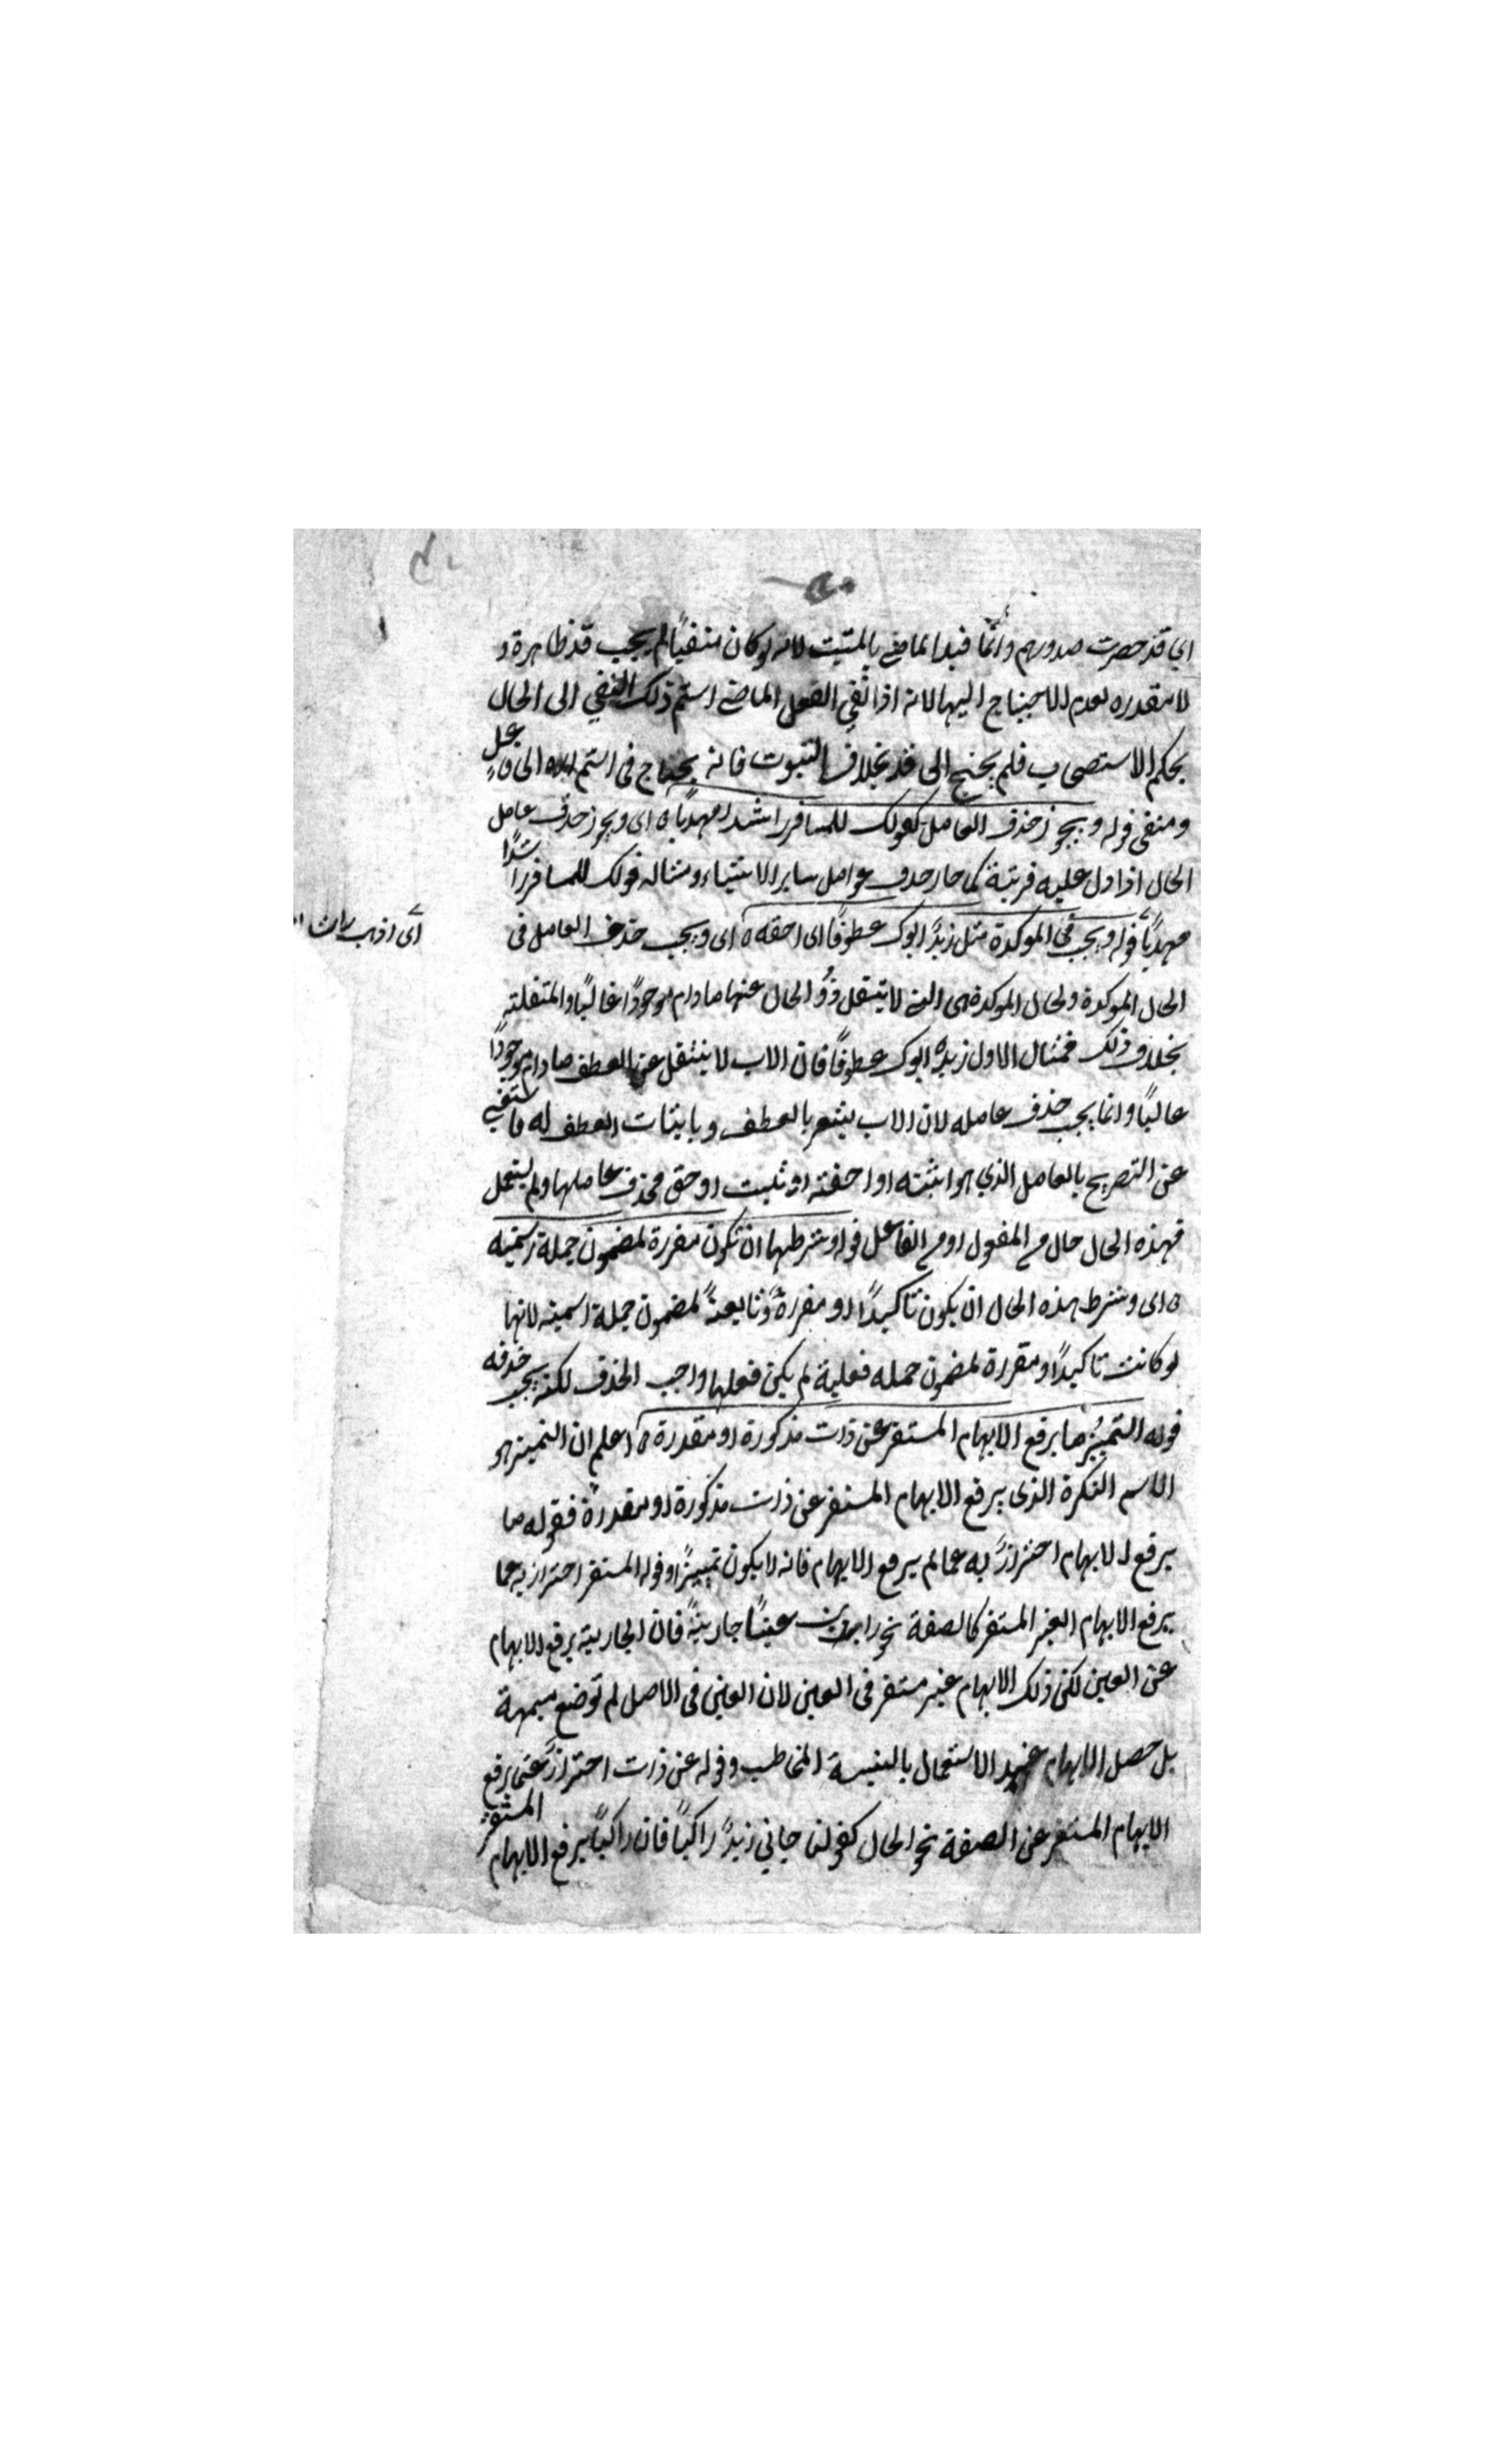 اي قد حصرت صدورهم وانما قيد الماضي بالمثبت لانه لو كان منفيًا لم يجب قد ظاهرة و
لا مقدره لعدم الاحتياج اليها لانه اذا نُفي الفعل الماضي استمر ذلك النفي الى الحال
بحكم الاستصحاب فلم يحتج الى قد بخلاف الثبوت فانه يحتاج في استمراره الى فاعل
ومنفى قوله ويجوز حذف العامل كقولك للمسافر راشدا مهديًا ه اى ويجوز حذف عامل
الحال اذا دل عليه قرينة كما جاز حذف عوامل ساير الاشياء ومثاله قولك للمسافر راشدًا
مهديًا قوله ويجب في الموكدة مثل زيدٌ ابوك عطوفًا اى احقه ه اى ويجب حذف العامل في
اى اذهب راشدا
الحال الموكدة ولحال الموكدة هى التي لا ينتقل ذو الحال عنها ما دام موجودًا غالبًا والمنتقلة
بخلاف ذلك فمثال الاول زيد ابوك عطوفًا فان الاب لا ينتقل عن العطف ما دام موجودًا
غالبًا وانما يجب حذف عامله لان الاب يشعر بالعطف وباثبات العطف له فاستغنى
عن التصريح بالعامل الذي هو اثبته او احقه او ثبت او حق فحذف عاملها ولم يستعمل
فهذه الحال حال من المفعول او من الفاعل قوله وشرطها ان تكون مقررة لمضمون جملة اسمية
ه اى وشرط هذه الحال ان يكون تأكيدًا او مقررةً وتابعةً لمضمون جملة اسمية لانها
لو كانت تاكيدًا ومقررة لمضمون جمله فعلية لم يكن فعلها واجب الحذف لكنه يجب حذفه
قوله التمييز ما يرفع الابهام المستقر عن ذات مذكورة او مقدرة ه اعلم ان التمييز هو
الاسم النكرة الذى يرفع الابهام المستقر عن ذات مذكورة او مقدرة فقوله ما
يرفع الابهام احترازٌ به عما لم يرفع الابهام فانه لا يكون تمييزًا وقوله المستقر احتراز به عما
يرفع الابهام الغير المستقر كالصفة نحو رايت عينًا جاريةً فان الجارية يرفع الابهام
عن العين لكن ذلك الابهام غير مستقر في العين لان العين في الاصل لم توضع مبهمة
بل حصل الابهام عند الاستعمال بالنسبة المخاطب وقوله عن ذات احترازٌ عن يرفع
الابهام المستقر عن الصفة نحو الحال كقولنا جاني زيدٌ راكبًا فان راكبًا يرفع الابهام المستقر